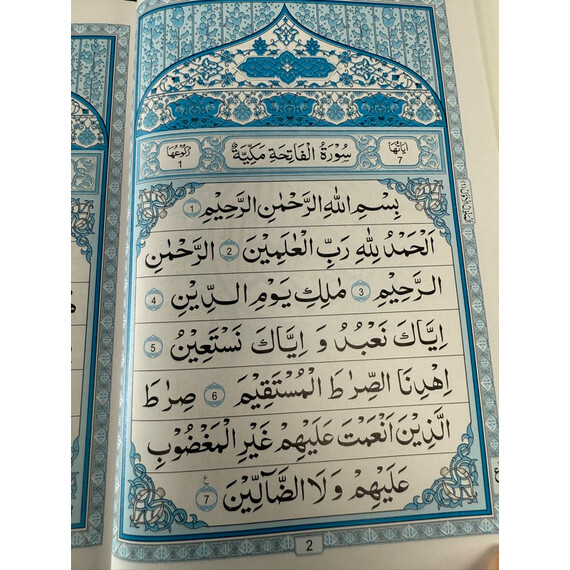 اٰيَاتُهَا سُوْرَةُ الْفَاتِحَةِ مَكِّيَّةٌ رُكُوْعُهَا
7 1
بِسْمِ اللّٰهِ الرَّحْمٰنِ الرَّحِيْمِ 1
اَلْحَمْدُ لِلّٰهِ رَبِّ الْعٰلَمِيْنَ 2 الرَّحْمٰنِ
الرَّحِيْمِ 3 مٰلِكِ يَوْمِ الدِّيْنِ 4
اِيَّاكَ نَعْبُدُ وَ اِيَّاكَ نَسْتَعِيْنُ 5
اِهْدِنَا الصِّرَاطَ الْمُسْتَقِيْمَ 6 صِرَاطَ
الَّذِيْنَ اَنْعَمْتَ عَلَيْهِمْ غَيْرِ الْمَغْضُوْبِ
عَلَيْهِمْ وَلَا الضَّآلِّيْنَ 7
2